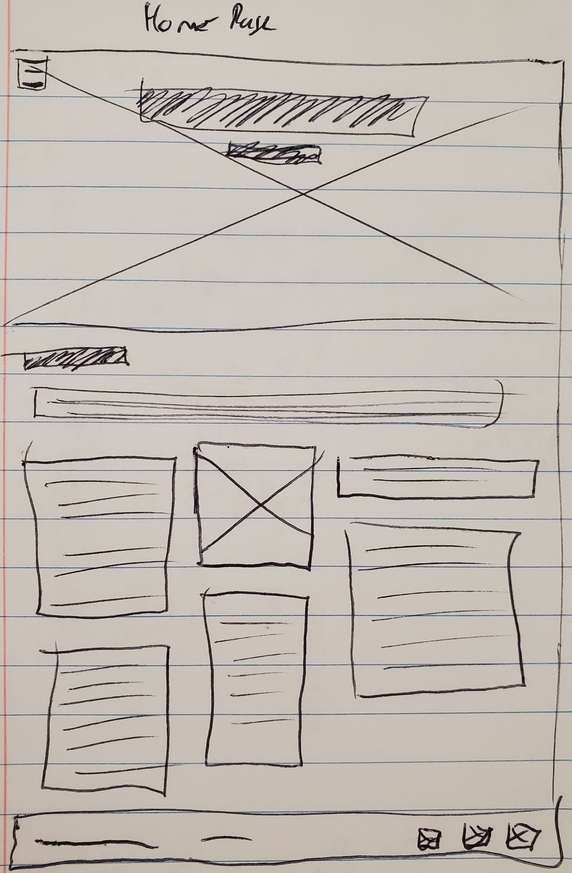 Home Page